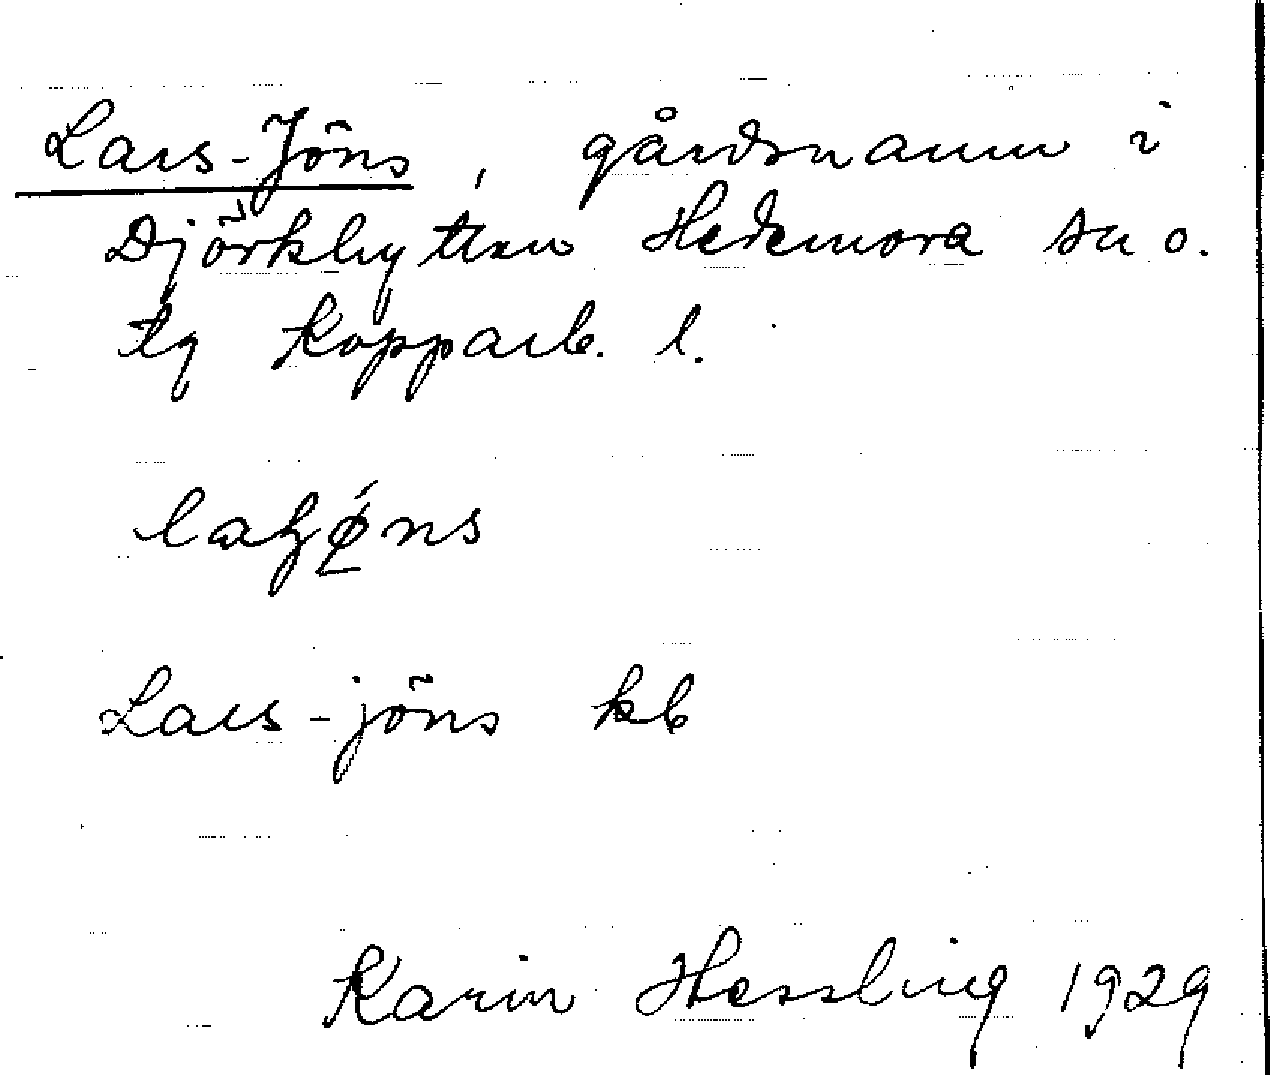 Lars-Jöns, gårdsnamn i
Djörkhyttan Hedemora sn o.
tg Kopparb. l.
Lars-jöns kb
Karin Hessling 1929